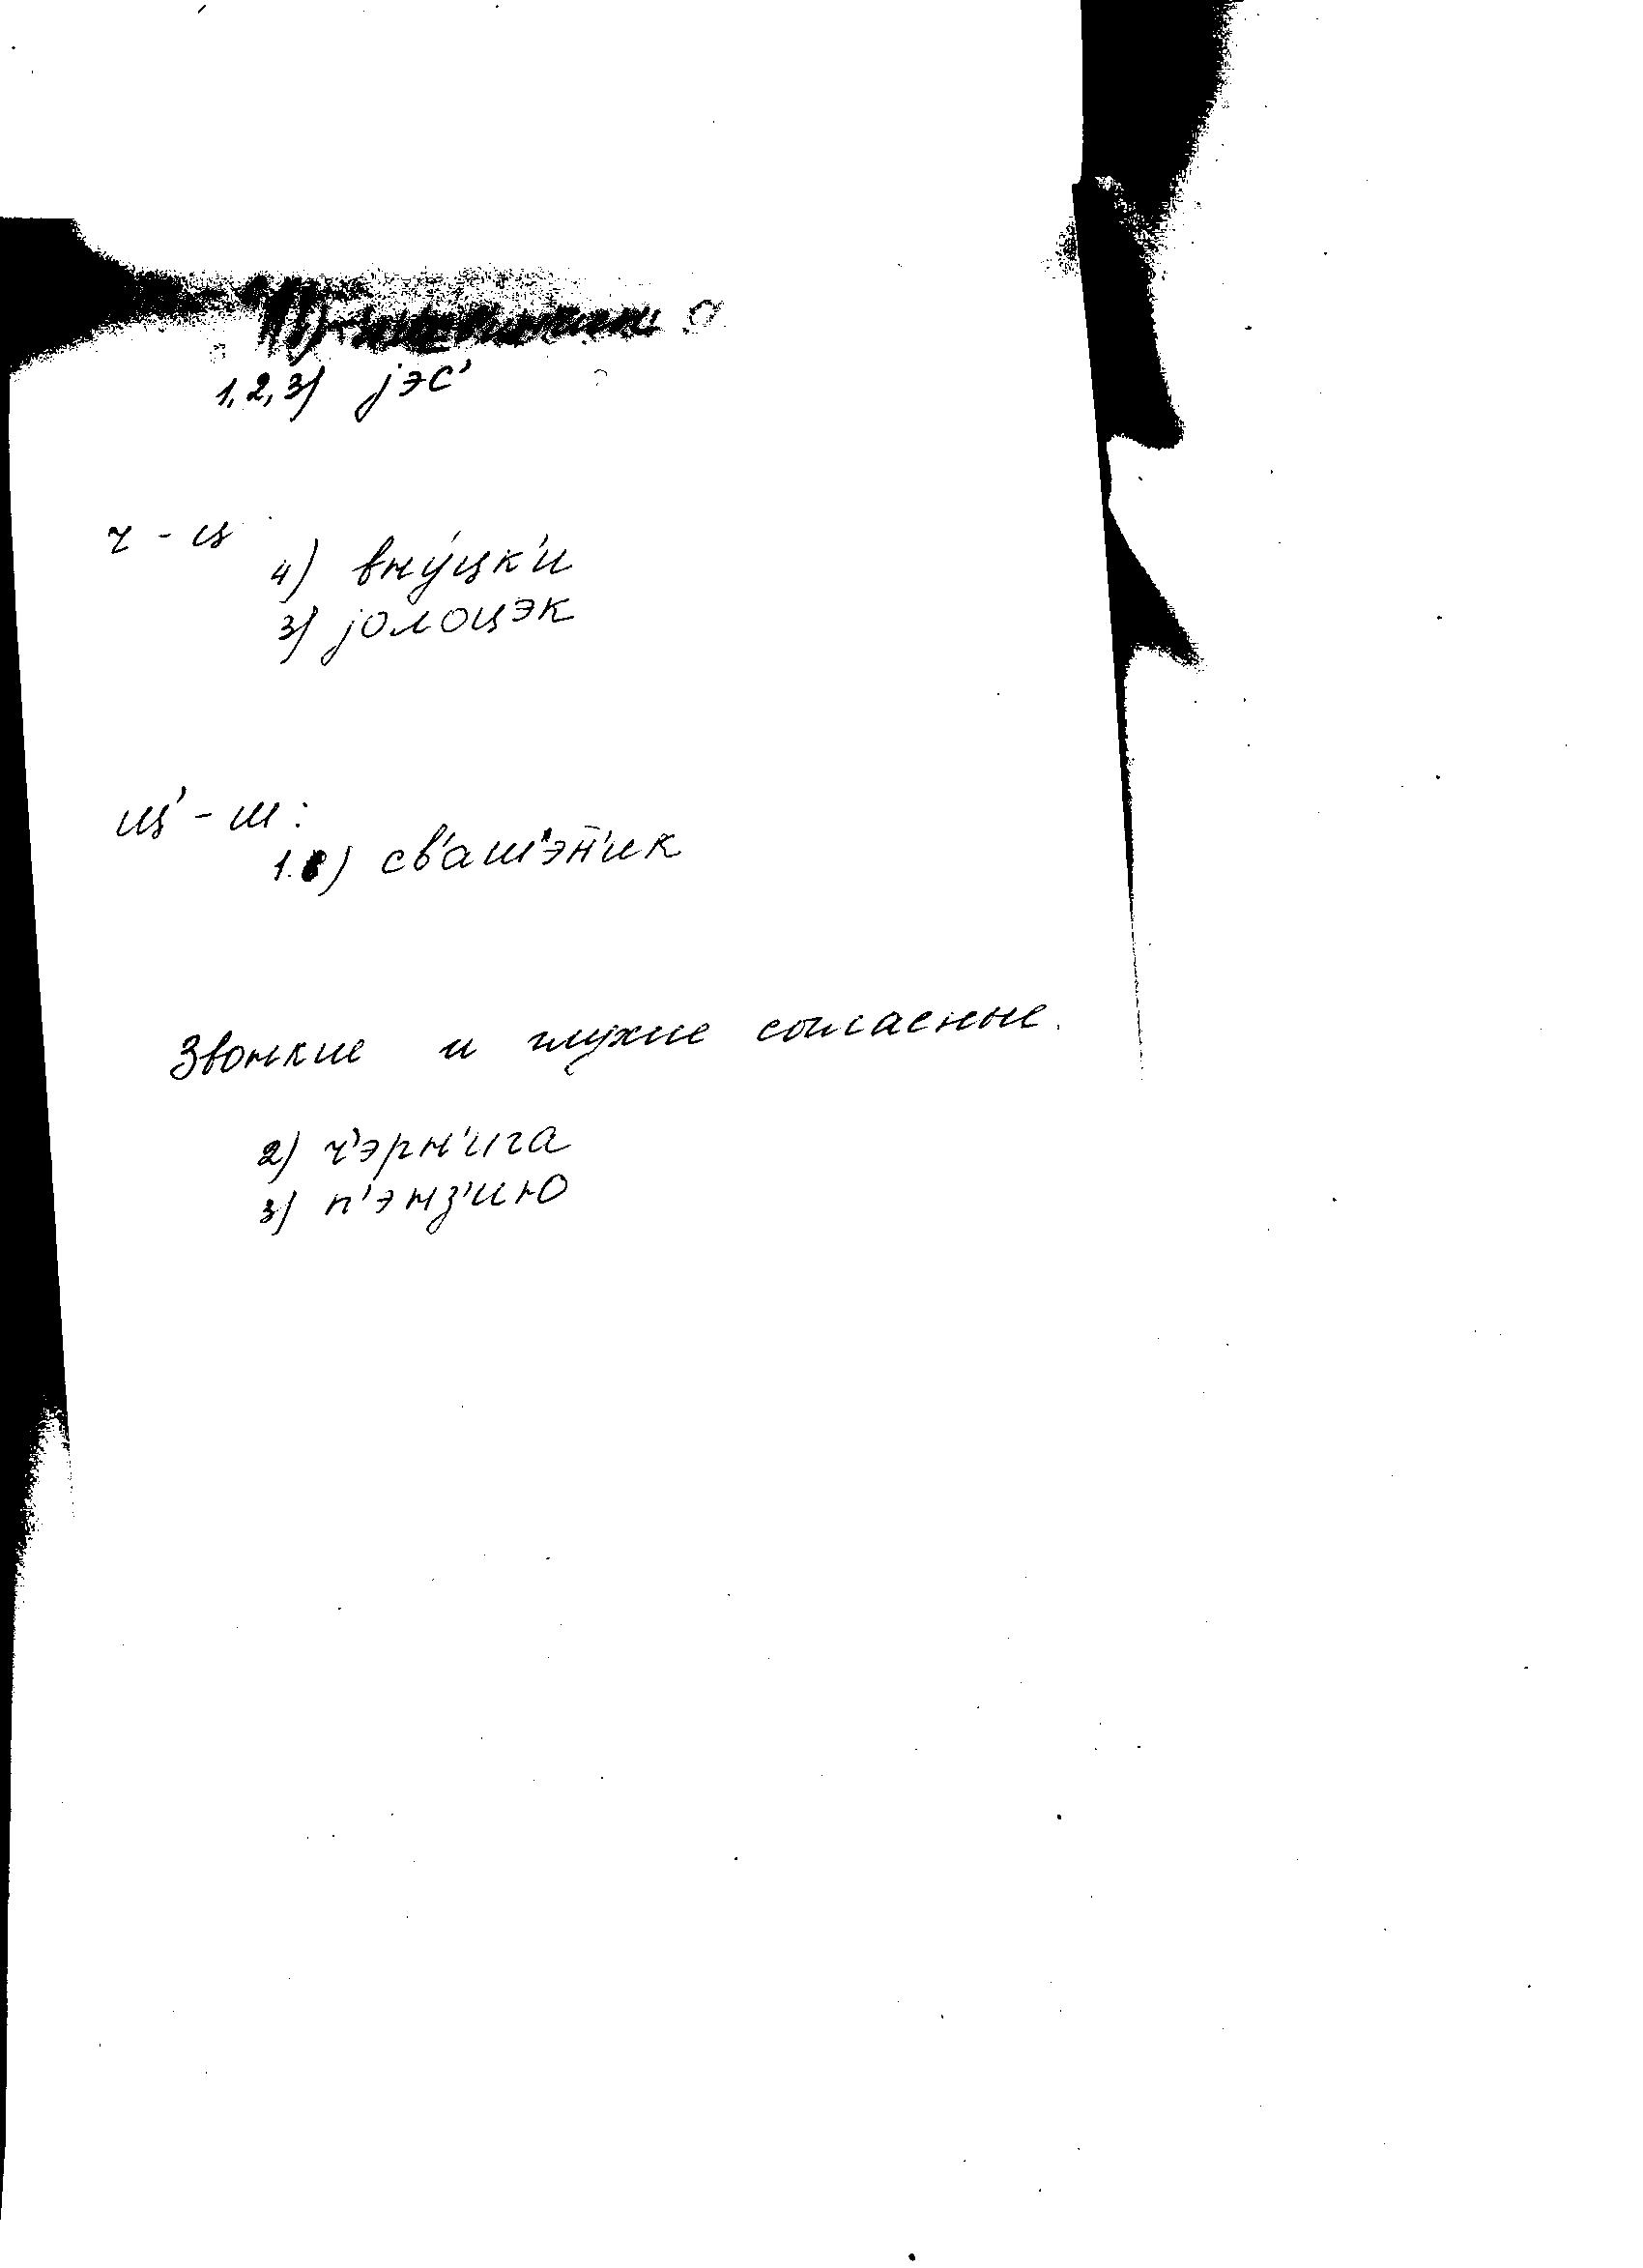 1,2,3) jэс'
ч - ц
4) вну́цк'и
3) jолоцэк
щ' - ш:
1.) св'аш'э́н̄'ик
Звонкие и глухие согласные.
2) ч'эрн'ига
3) п'энз'ию